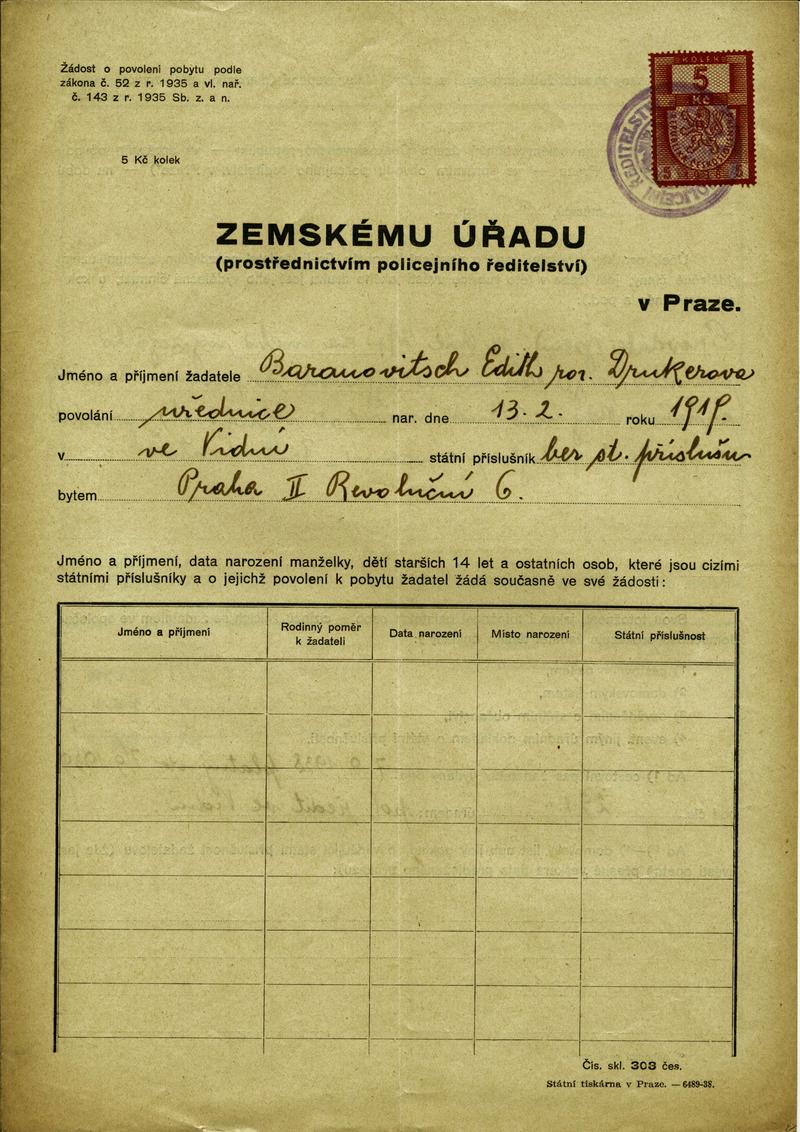 Žádost o povolení pobytu podle
zákona č. 52 z r. 1935 a vl. nař.
č. 143 z r. 1935 Sb. z. a n.
5 Kč kolek
KOLEK
5
Kč
5 5
ZEMSKÉMU ÚŘADU
(prostřednictvím policejního ředitelství)
v Praze.
Jméno a příjmení žadatele Baranovitsch Edith roz. Drukerova
povolání úřednice nar. dne 13. 2. roku 1919.
v ve Vídni státní příslušník bez st. příslušn
bytem Praha II Revoluční 6.
Jméno a příjmení, data narození manželky, dětí starších 14 let a ostatních osob, které jsou cizími
státními příslušníky a o jejichž povolení k pobytu žadatel žádá současně ve své žádosti:
Jméno a příjmení Rodinný poměr k žadateli Data narození Místo narození Státní příslušnost
Čís. skl. 303 čes.
Státní tiskárna v Praze. — 6489-38.